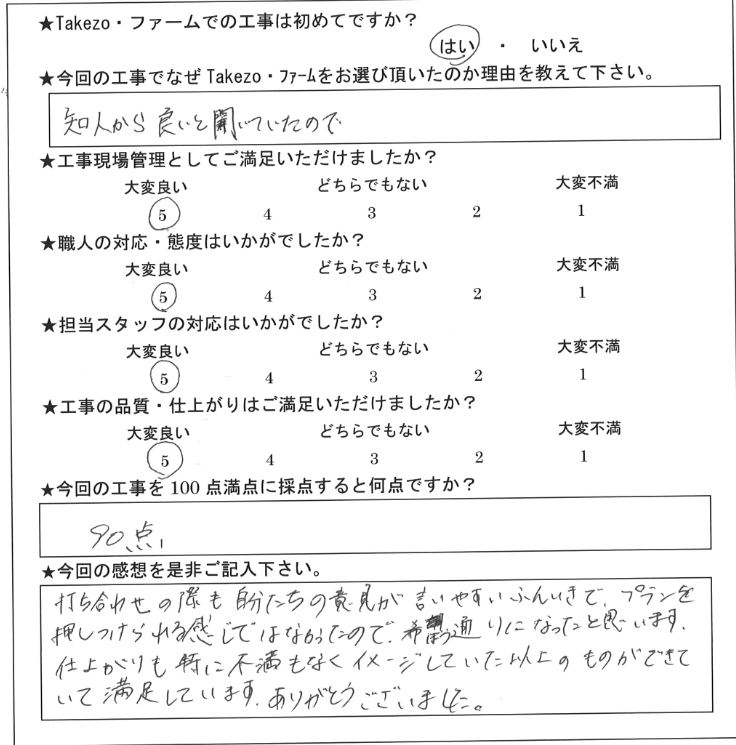 ★Takezo・ファームでの工事は初めてですか？
はい ・ いいえ
★今回の工事でなぜTakezo・ﾌｧｰﾑをお選び頂いたのか理由を教えて下さい。
知人から良いと聞いていたので
★工事現場管理としてご満足いただけましたか？
大変良い どちらでもない 大変不満
5 4 3 2 1
★職人の対応・態度はいかがでしたか？
大変良い どちらでもない 大変不満
5 4 3 2 1
★担当スタッフの対応はいかがでしたか？
大変良い どちらでもない 大変不満
5 4 3 2 1
★工事の品質・仕上がりはご満足いただけましたか？
大変良い どちらでもない 大変不満
5 4 3 2 1
★今回の工事を100点満点に採点すると何点ですか？
90点
★今回の感想を是非ご記入下さい。
打ち合わせの際も自分たちの意見が言いやすいふんいきで、プランを
押しつけられる感じではなかったので、希望通りになったと思います。
仕上がりも特に不満もなくイメージしていた以上のものができて
いて満足しています。ありがとうございました。